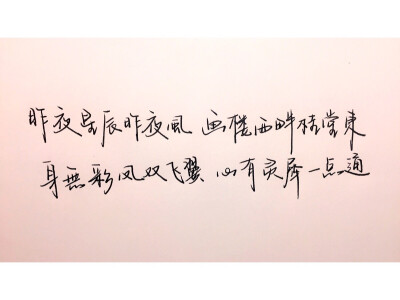 昨夜星辰昨夜風 画楼西畔桂堂東
身無彩凤双飞翼 心有灵犀一点通